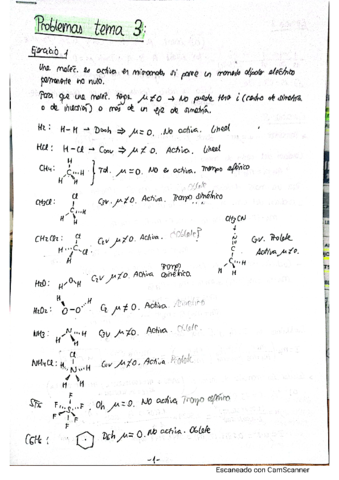 Problemas tema 3:
Ejercicio 1
Una moléc. es activa en microondas si posee un momento dipolar eléctrico
permanente no nulo.
Para que una moléc. tenga μ≠0 → No puede tener i (centro de simetría
o de inversión) o más de un eje de simetría.
H2: H-H → D∞h ⇒ μ=0. No activa. Lineal
HCl: H-Cl → C∞v ⇒ μ≠0. Activa. Lineal
CH4: H C H H H } Td. μ=0. No es activa. Trompo esférico
Oblato
CH3Cl: Cl C H H H C3v. μ≠0. Activa. Trompo simétrico
CH3CN
CH2Cl2: Cl C Cl H H C2v μ≠0. Activa. Oblato?
N C C H H H C3v. Prolate
Activa μ≠0.
H2O: H O H C2v μ≠0. Activa Trompo asimétrico.
H2O2: H O-O H C2 μ≠0. Activa.
NH3: H N H H C3v μ≠0. Activa. Oblato.
Cl
H N H H C3v μ≠0. Activa Prolate
SF6: F F F S F F F Oh μ=0. No activa Trompo esférico
C6H6: D6h μ=0. No activa. Oblate
-1-
Escaneado con CamScanner